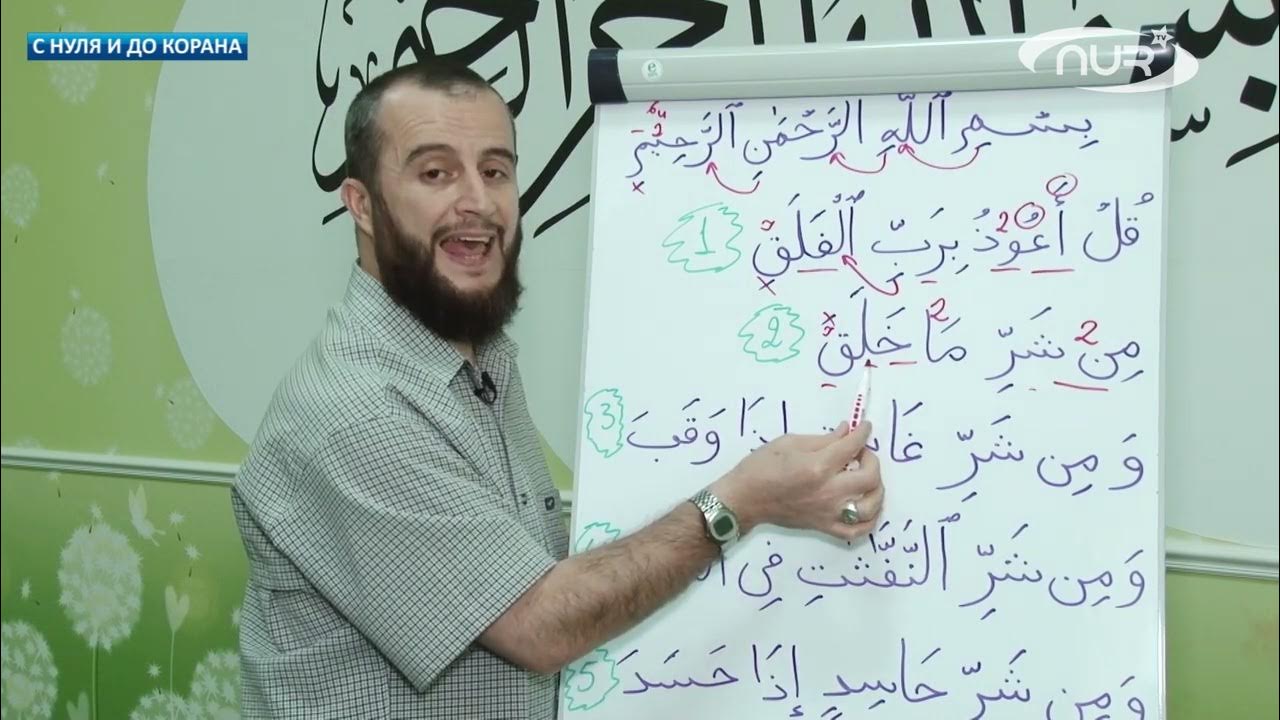 С НУЛЯ И ДО КОРАНА
NUR TV
بِسْمِ ٱللَّهِ ٱلرَّحْمَٰنِ ٱلرَّحِيمِ
قُلْ أَعُوذُ بِرَبِّ ٱلْفَلَقِ 1
مِن شَرِّ مَا خَلَقَ 2
وَمِن شَرِّ غَاسِقٍ إِذَا وَقَبَ 3
وَمِن شَرِّ ٱلنَّفَّٰثَٰتِ فِي
وَمِن شَرِّ حَاسِدٍ إِذَا حَسَدَ 5